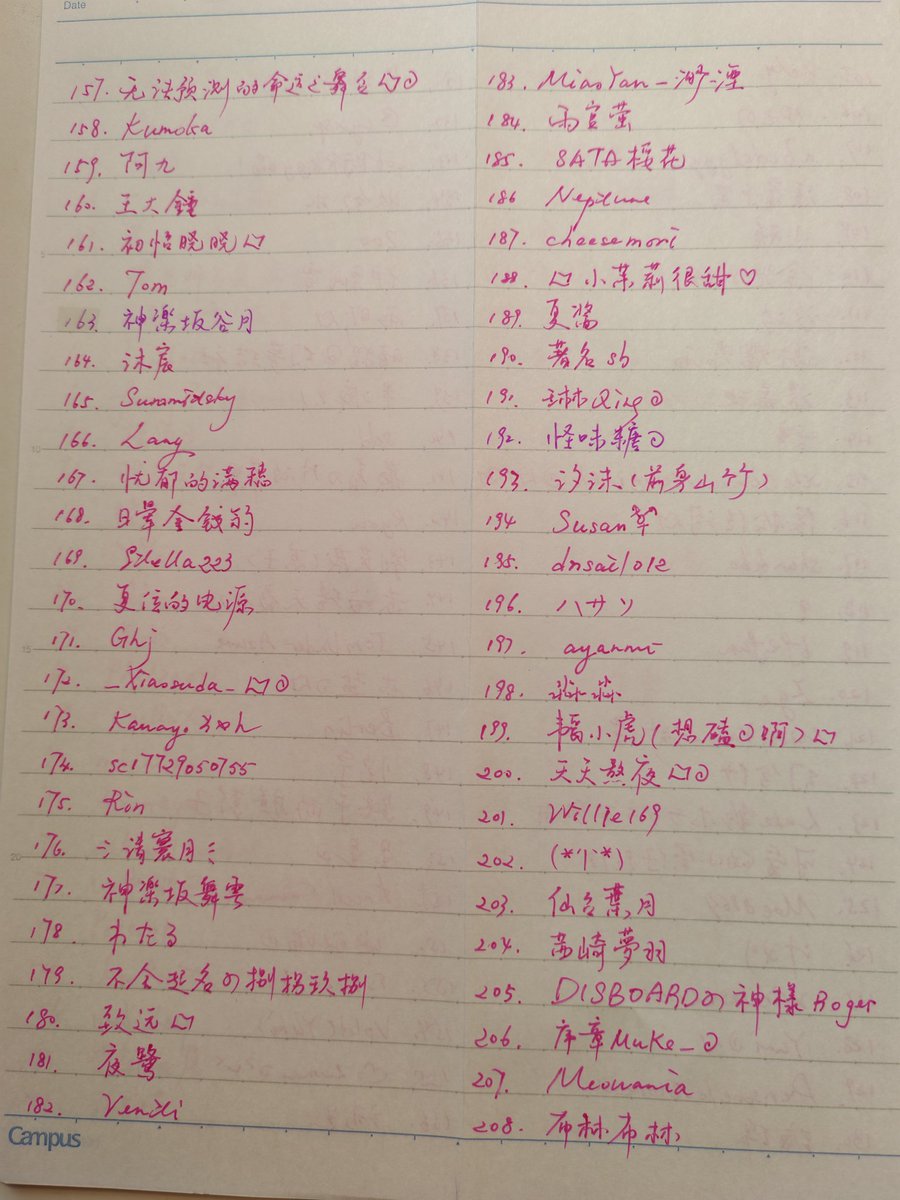 Date
157. 无法预测的命运之舞台
158. Kumoka
159. 阿九
160. 王大鐘
161. 初怡晓晓
162. Tom
163. 神楽坂谷月
164. 沫宸
165.
166. Lang
167. 忧郁的满穗
168. 日暈金钱的
169. Stella223
170. 复位的电源
171. Ghj
172. _Xiaosuda_
173.
174. sc17729050755
175. Rin
176. 三清寰月三
177. 神楽坂舞雲
178. わたる
179. 不会起名の捌拐玖捌
180. 致远
181. 夜鹭
182.
183. MiaoYan-渺湮
184. 雨宫萤
185. SATA桜花
186 Neptune
187. cheesemori
188. 小茉莉很甜♡
189. 夏酱
190. 著名sb
191. 琳Qing
192. 怪味糖
193. 汐沫(前身山竹)
194 Susan
195. dnsailole
196. ハサソ
197. ayanmi
198. 淼淼
199. 韬小虎(想磕 啊)
200. 天天熬夜
201. Willie169
202.
203. 仙台葉月
204. 茜崎夢羽
205. DISBOARDの神様Roger
206. 序章MuKe_
207. Meowania
208. 布林布林
Campus